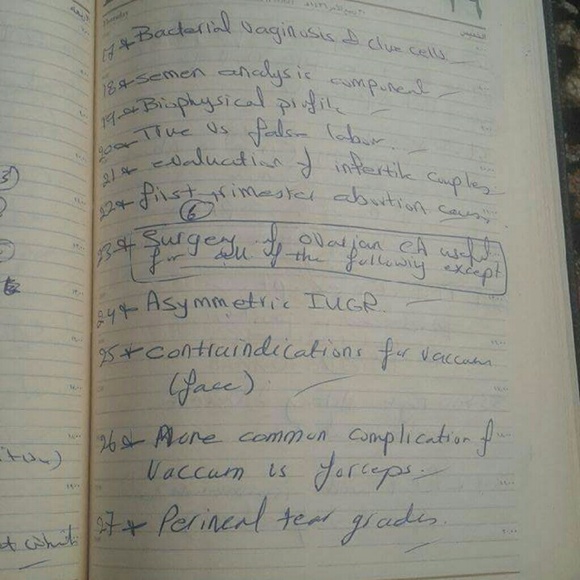 17* Bacterial vaginosis & clue cells
18* semen analysis component
19* Biophysical profile
20* True vs false labor.
21* evaluation of infertile couples
22* first trimester abortion causes
6
23* Surgery of ovarian CA useful
for all of the following except
24* Asymmetric IUGR
25* contraindications for vaccum
(face)
26* More common complication of
Vaccum vs forceps.
27* Perineal tear grades.